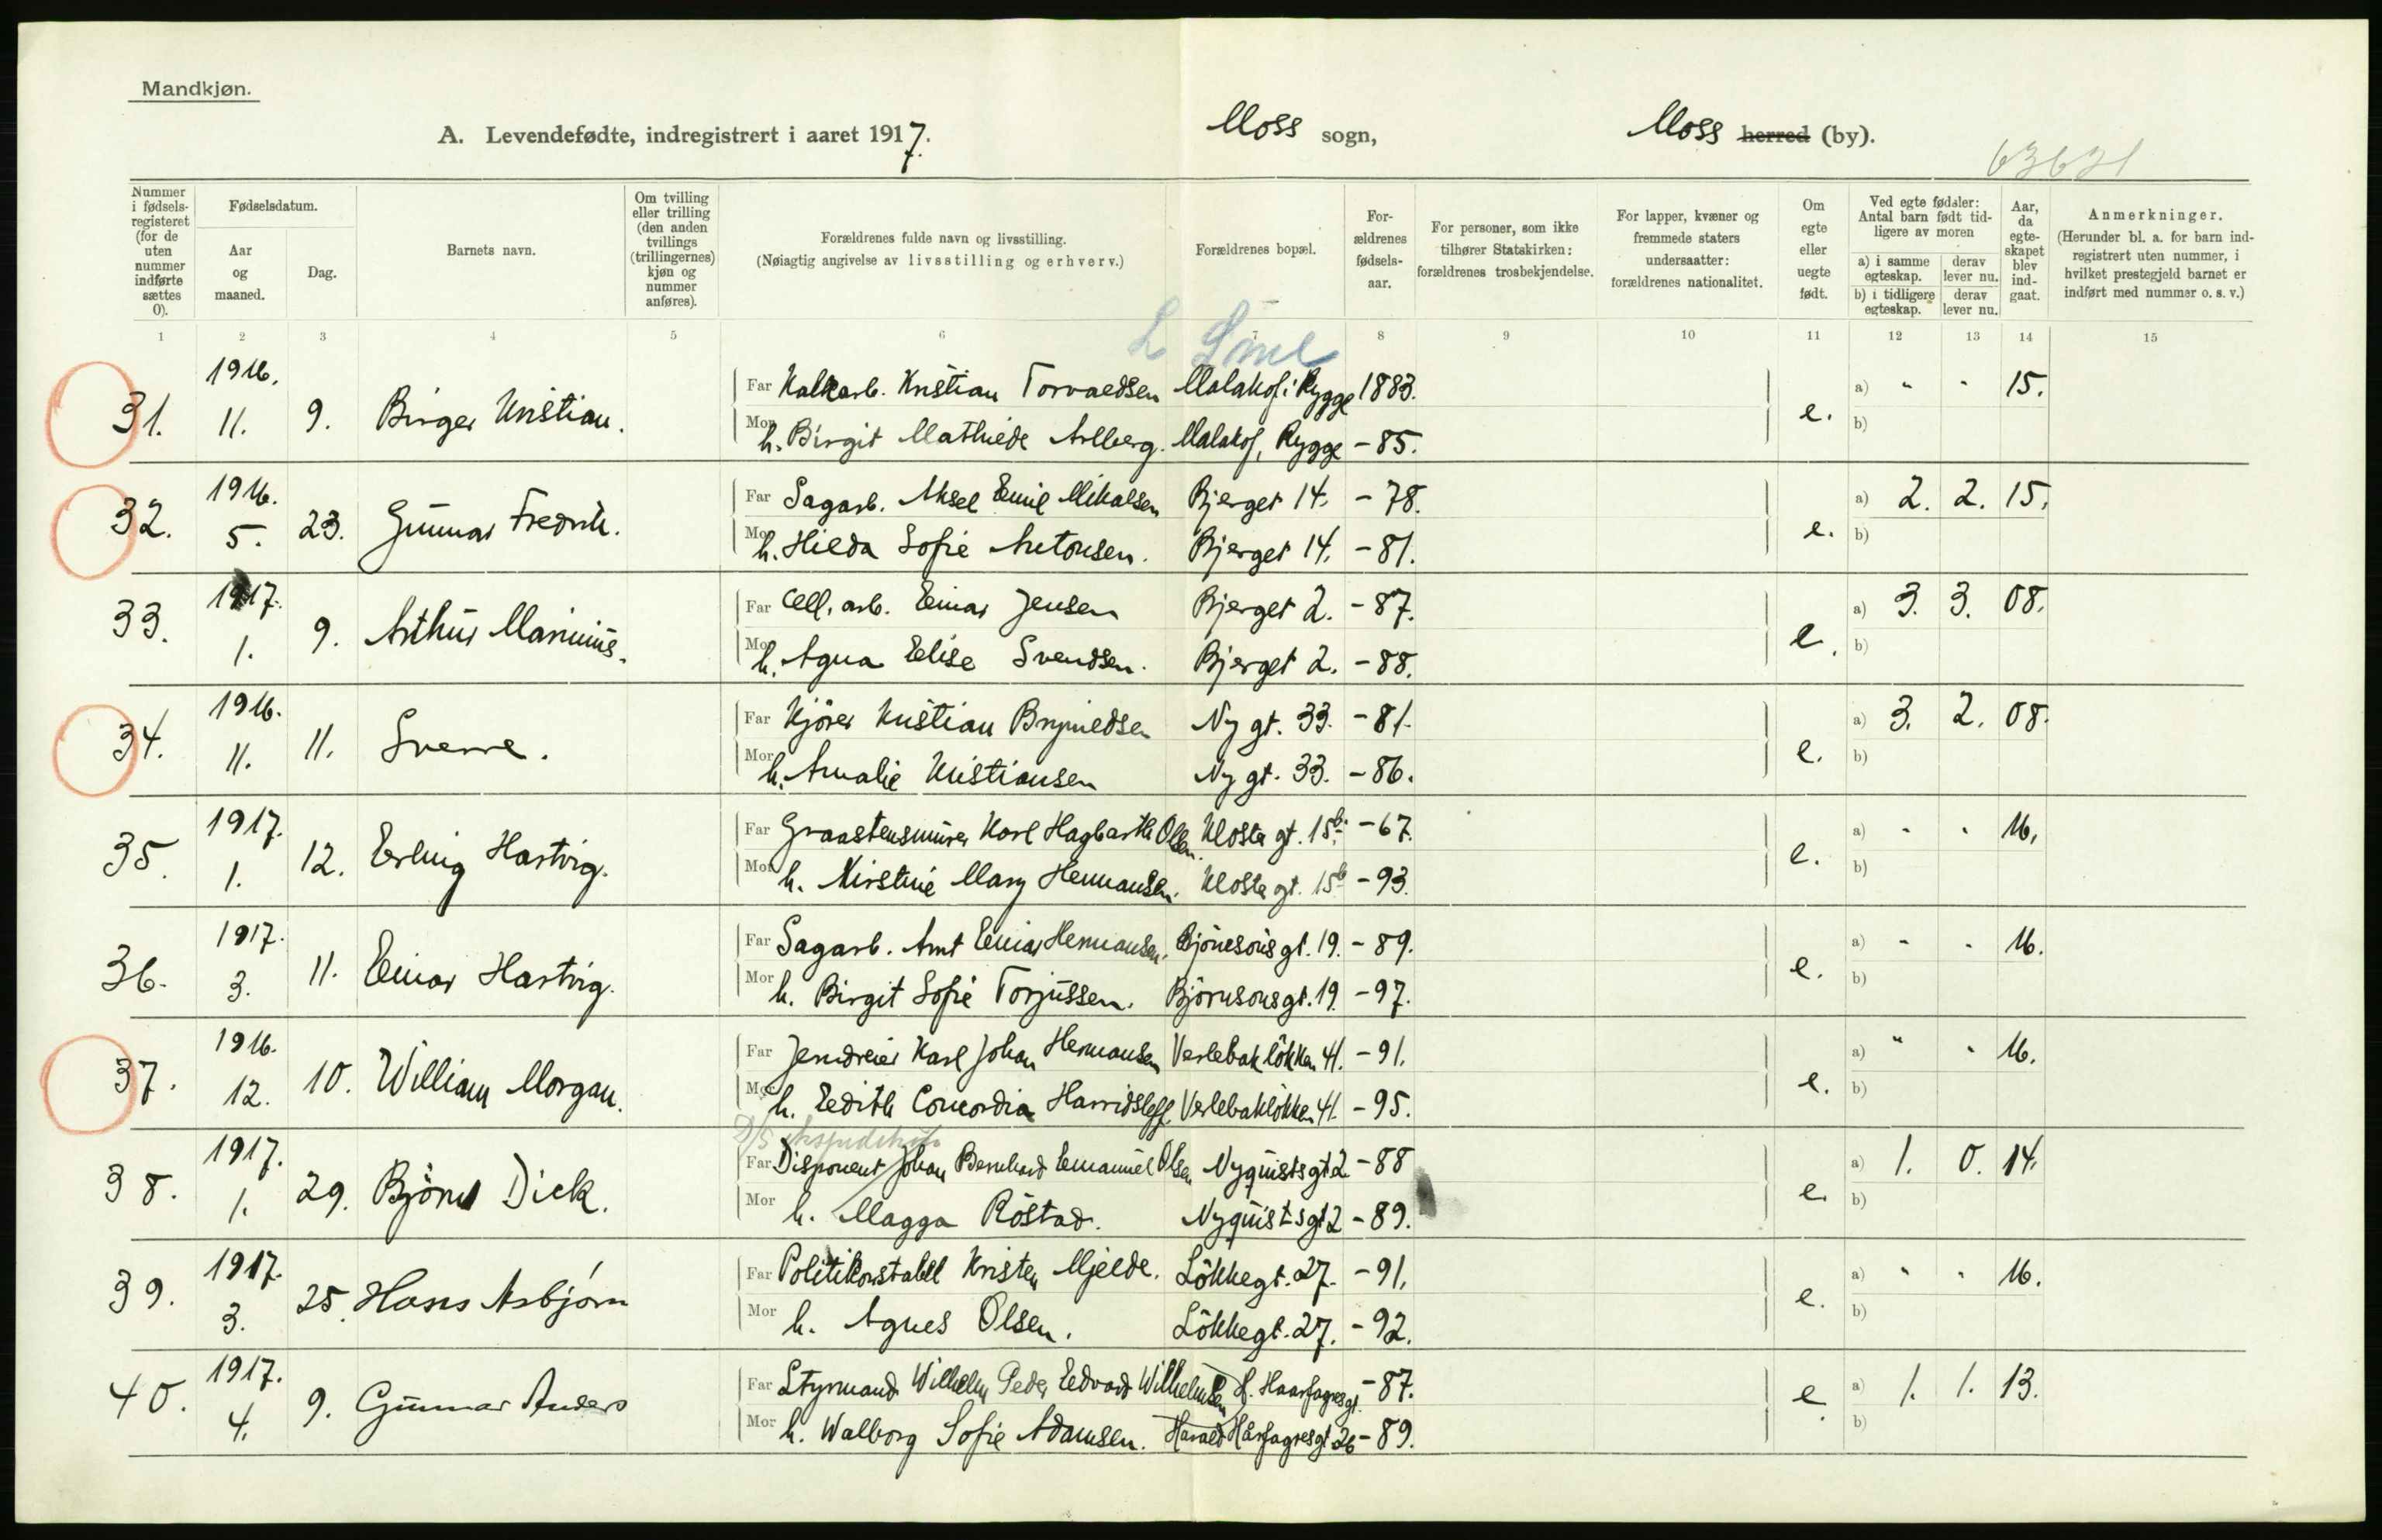 Mandkjøn.
A. Levendefødte, indregistrert i aaret 1917. Moss sogn, Moss herred (by).
63631
Nummer i fødsels-registeret (for de uten nummer indførte sættes 0).
Fødselsdatum.
Aar og maaned.
Dag.
Barnets navn.
Om tvilling eller trilling (den anden tvillings (trillingernes) kjøn og nummer anføres).
Forældrenes fulde navn og livsstilling.
(Nøiagtig angivelse av livsstilling og erhverv.)
Forældrenes bopæl.
For-ældrenes fødsels-aar.
For personer, som ikke tilhører Statskirken: forældrenes trosbekjendelse.
For lapper, kvæner og fremmede staters undersaatter: forældrenes nationalitet.
Om egte eller uegte født.
Ved egte fødsler: Antal barn født tid-ligere av moren
a) i samme egteskap. derav lever nu.
b) i tidligere egteskap. derav lever nu.
Aar, da egte-skapet blev ind-gaat.
Anmerkninger.
(Herunder bl. a. for barn ind-registrert uten nummer, i hvilket prestegjeld barnet er indført med nummer o. s. v.)
1 2 3 4 5 6 7 8 9 10 11 12 13 14 15
31. 1916. 11. 9. Birger Kristian. e. a) " " 15. b)
Far Kalkarb. Kristian Torvaldsen Malakof i Rygge 1883.
Mor h. Birgit Mathilde Arlberg. Malakof, Rygge -85.
32. 1916. 5. 23. Gunnar Fredrik. e. a) 2. 2. 15. b)
Far Sagarb. Aksel Emil Mikalsen Bjerget 14. -78.
Mor h. Hilda Sofie Antonsen. Bjerget 14. -81.
33. 1917. 1. 9. Arthur Marinius. e. a) 3. 3. 08. b)
Far Cell. arb. Einar Jensen Bjerget 2. -87.
Mor h. Agna Elise Svendsen. Bjerget 2. -88.
34. 1916. 11. 11. Sverre. e. a) 3. 2. 08. b)
Far Kjörer Kristian Brynildsen Ny gt. 33. -81.
Mor h. Amalie Kristiansen Ny gt. 33. -86.
35. 1917. 1. 12. Erling Hartvig. e. a) " " 16. b)
Far Graastensmurer Karl Hagbarth Olsen. Kloster gt. 15b. -67.
Mor h. Kirstine Mary Hermansen. Kloster gt. 15b -93.
36. 1917. 3. 11. Einar Hartvig. e. a) " " 16. b)
Far Sagarb. Arnt Einar Hermansen. Björnsons gt. 19. -89.
Mor h. Birgit Sofie Torjussen. Björnsons gt. 19. -97.
37. 1916. 12. 10. William Morgan. e. a) " " 16. b)
Far Jerndreier Karl Johan Hermansen Verlebaklökken 41. -91.
Mor h. Edith Concordia Harridsleff. Verlebaklökken 41. -95.
38. 1917. 1. 29. Björn Dick. e. a) 1. 0. 14. b)
Far Disponent Johan Bernhard Emanuel Olsen Nyquistsgt 2 -88
Mor h. Magga Röstad. Nyquistsgt 2 -89.
39. 1917. 3. 25. Hans Asbjørn e. a) " " 16. b)
Far Politikonstabel Kristen Mjelde. Lökkegt. 27. -91.
Mor h. Agnes Olsen. Lökkegt. 27. -92.
40. 1917. 4. 9. Gunnar Anders e. a) 1. 1. 13. b)
Far Styrmand Wilhelm Peder Edvard Wilhelmsen H. Haarfagresgt. -87.
Mor h. Walborg Sofie Adamsen. Harald Hårfagresgt 26 -89.